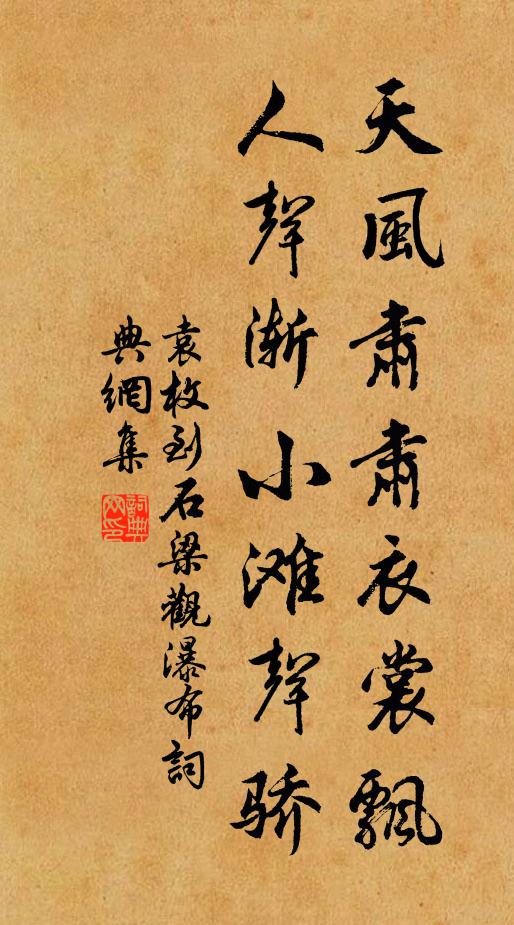 天風肅肅衣裳飄
人聲渐小滩聲骄
袁枚到石梁觀瀑布詞
典網集
詞典
网印